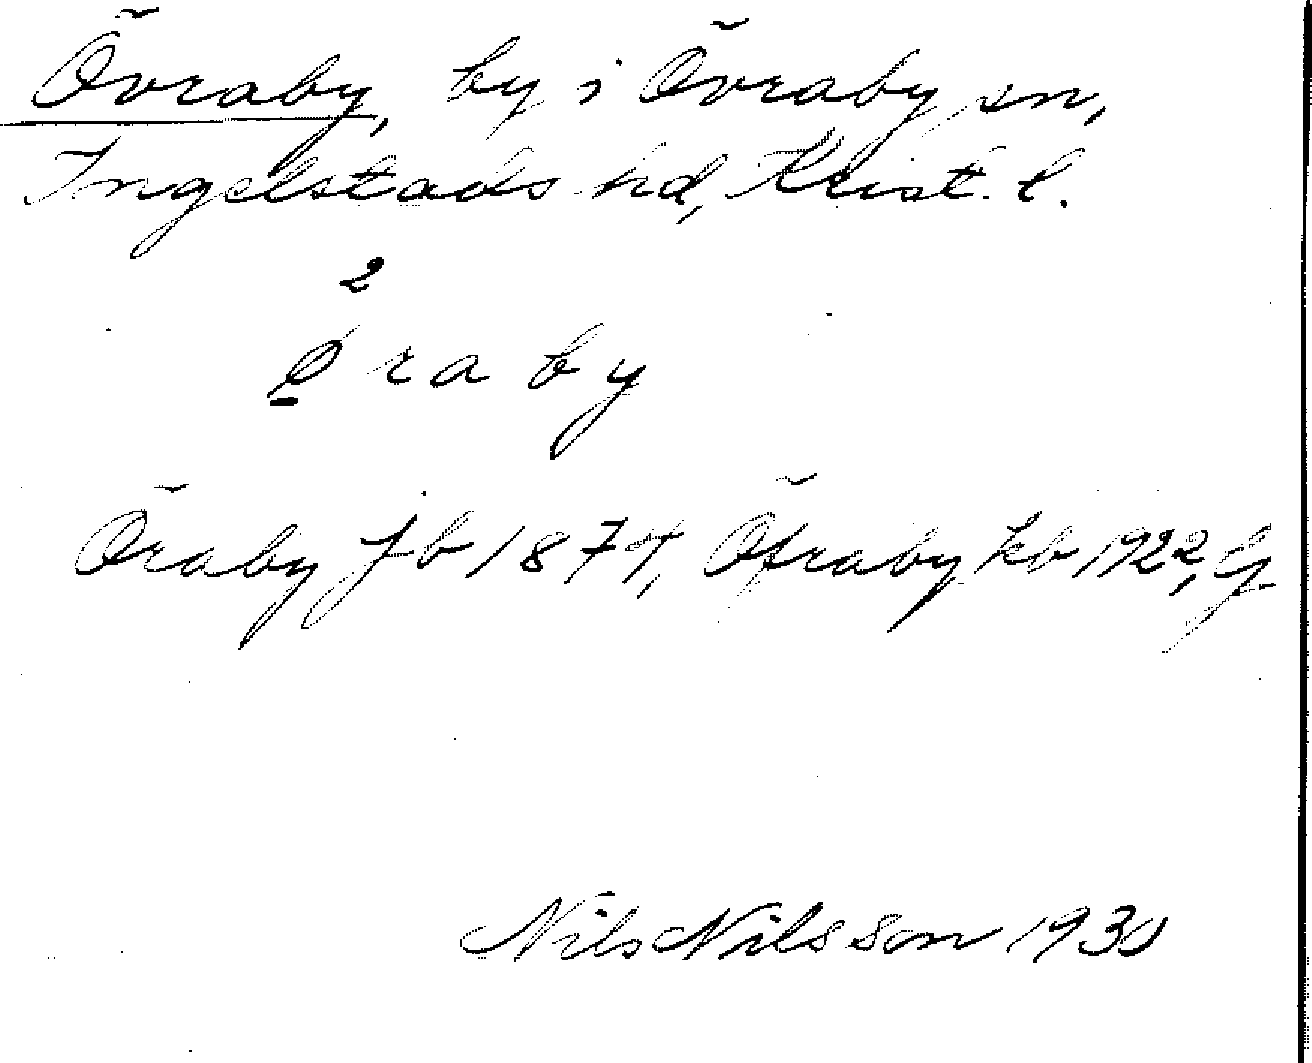 Övraby, by i Övraby sn,
Ingelstads hd, Krist. l.
2
ø r a b y
Öraby jb 1877, Öfraby kb 1922,
Nils Nilsson 1930